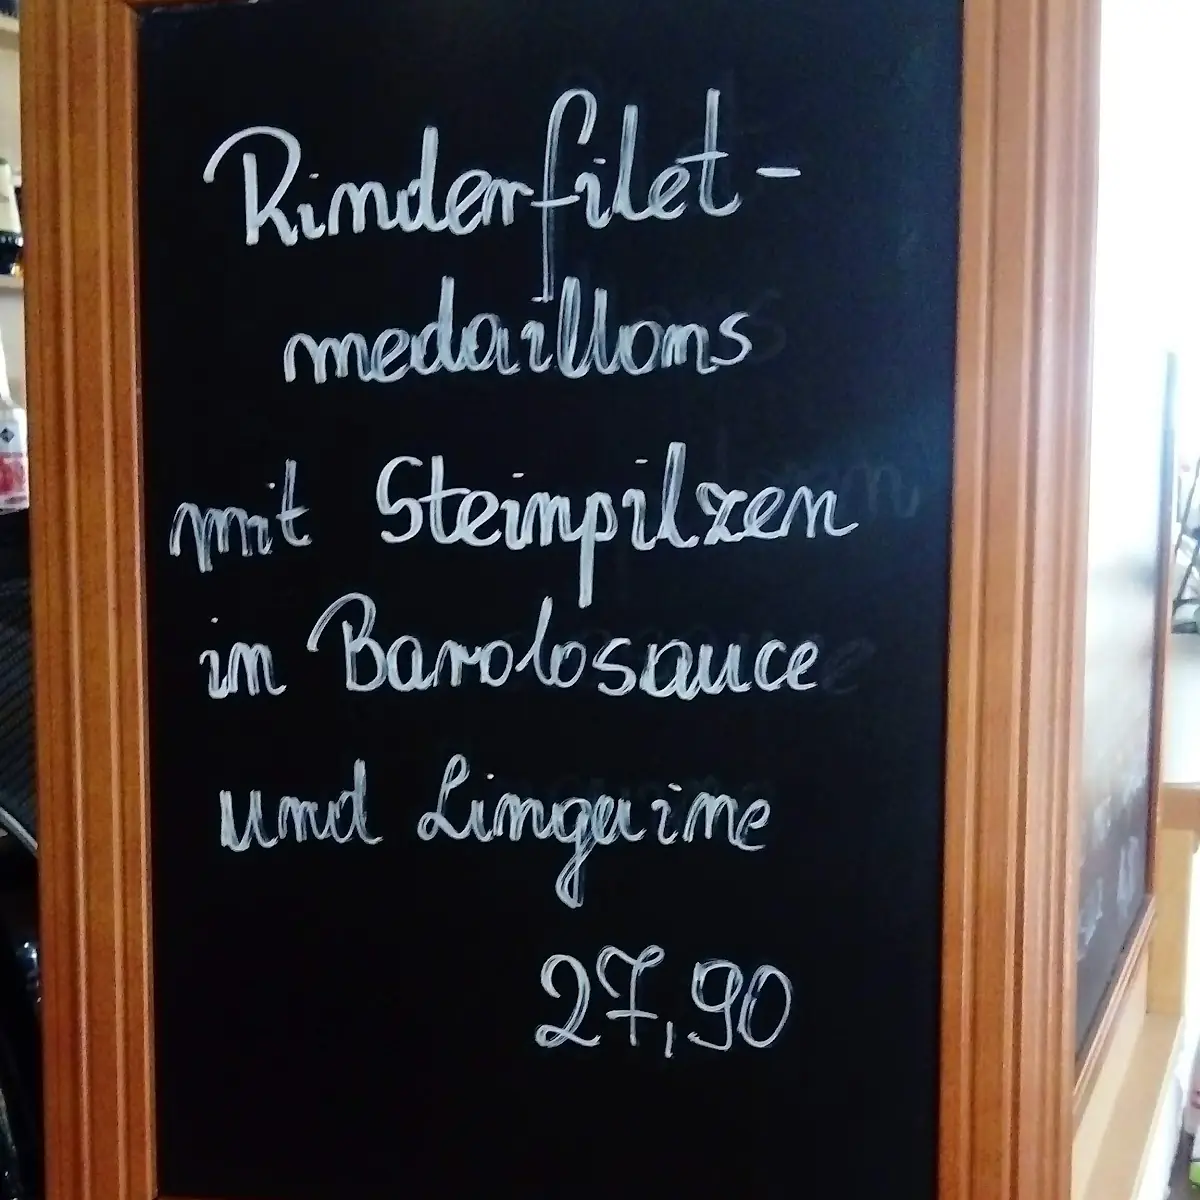 Rinderfilet-
medaillons
mit Steinpilzen
in Barolosauce
und Linguine
27,90